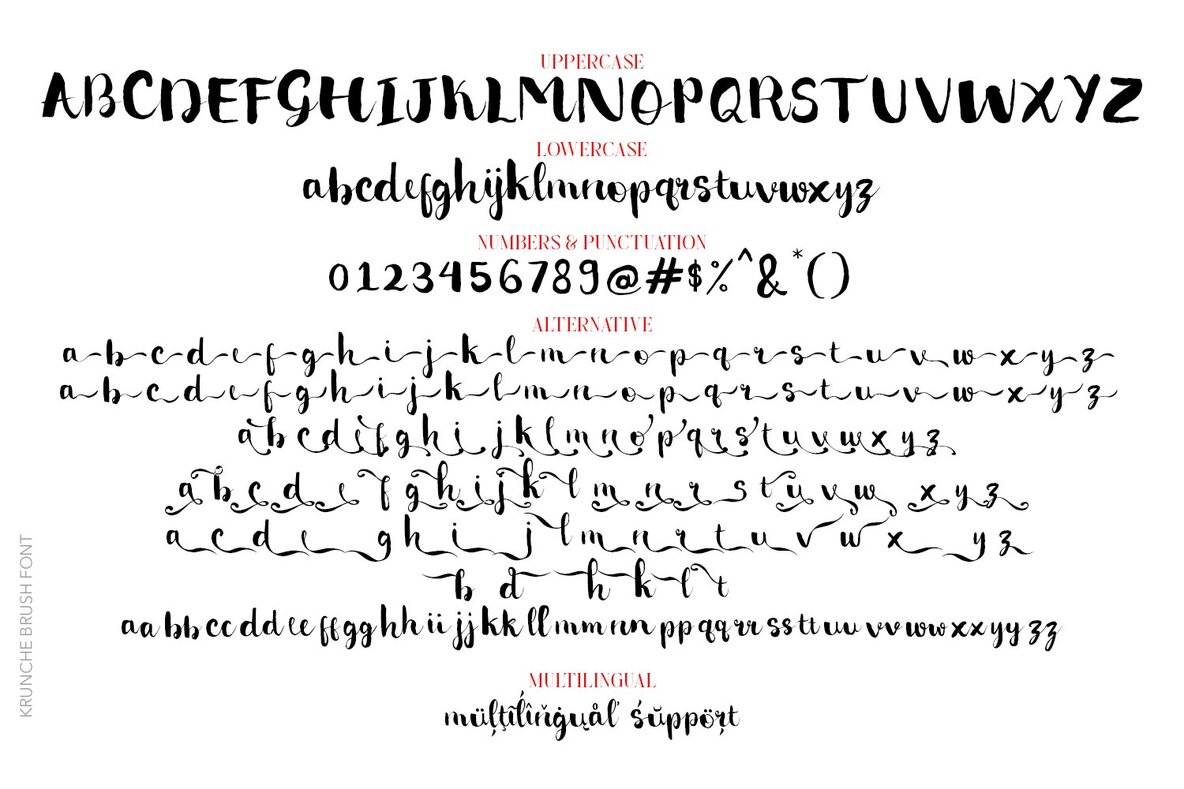 UPPERCASE
ABCDEFGHIJKLMNOPQRSTUVWXYZ
LOWERCASE
abcdefghijklmnopqrstuvwxyz
NUMBERS & PUNCTUATION
0123456789@#$%^&*()
ALTERNATIVE
a b c d e f g h i j k l m n o p q r s t u v w x y z
a b c d e f g h i j k l m n o p q r s t u v w x y z
a b c d e f g h i j k l m n o p q r s t u v w x y z
a b c d e f g h i j k l m n r s t u v w x y z
a c d e g h i j l m n r t u v w x y z
b d h k l t
aa bb cc dd ee ff gg hh ii jj kk ll mm nn pp qq rr ss tt uu vv ww xx yy zz
MULTILINGUAL
müļţīĺîňġųåľ śŭppöŗţ
KRUNCHE BRUSH FONT